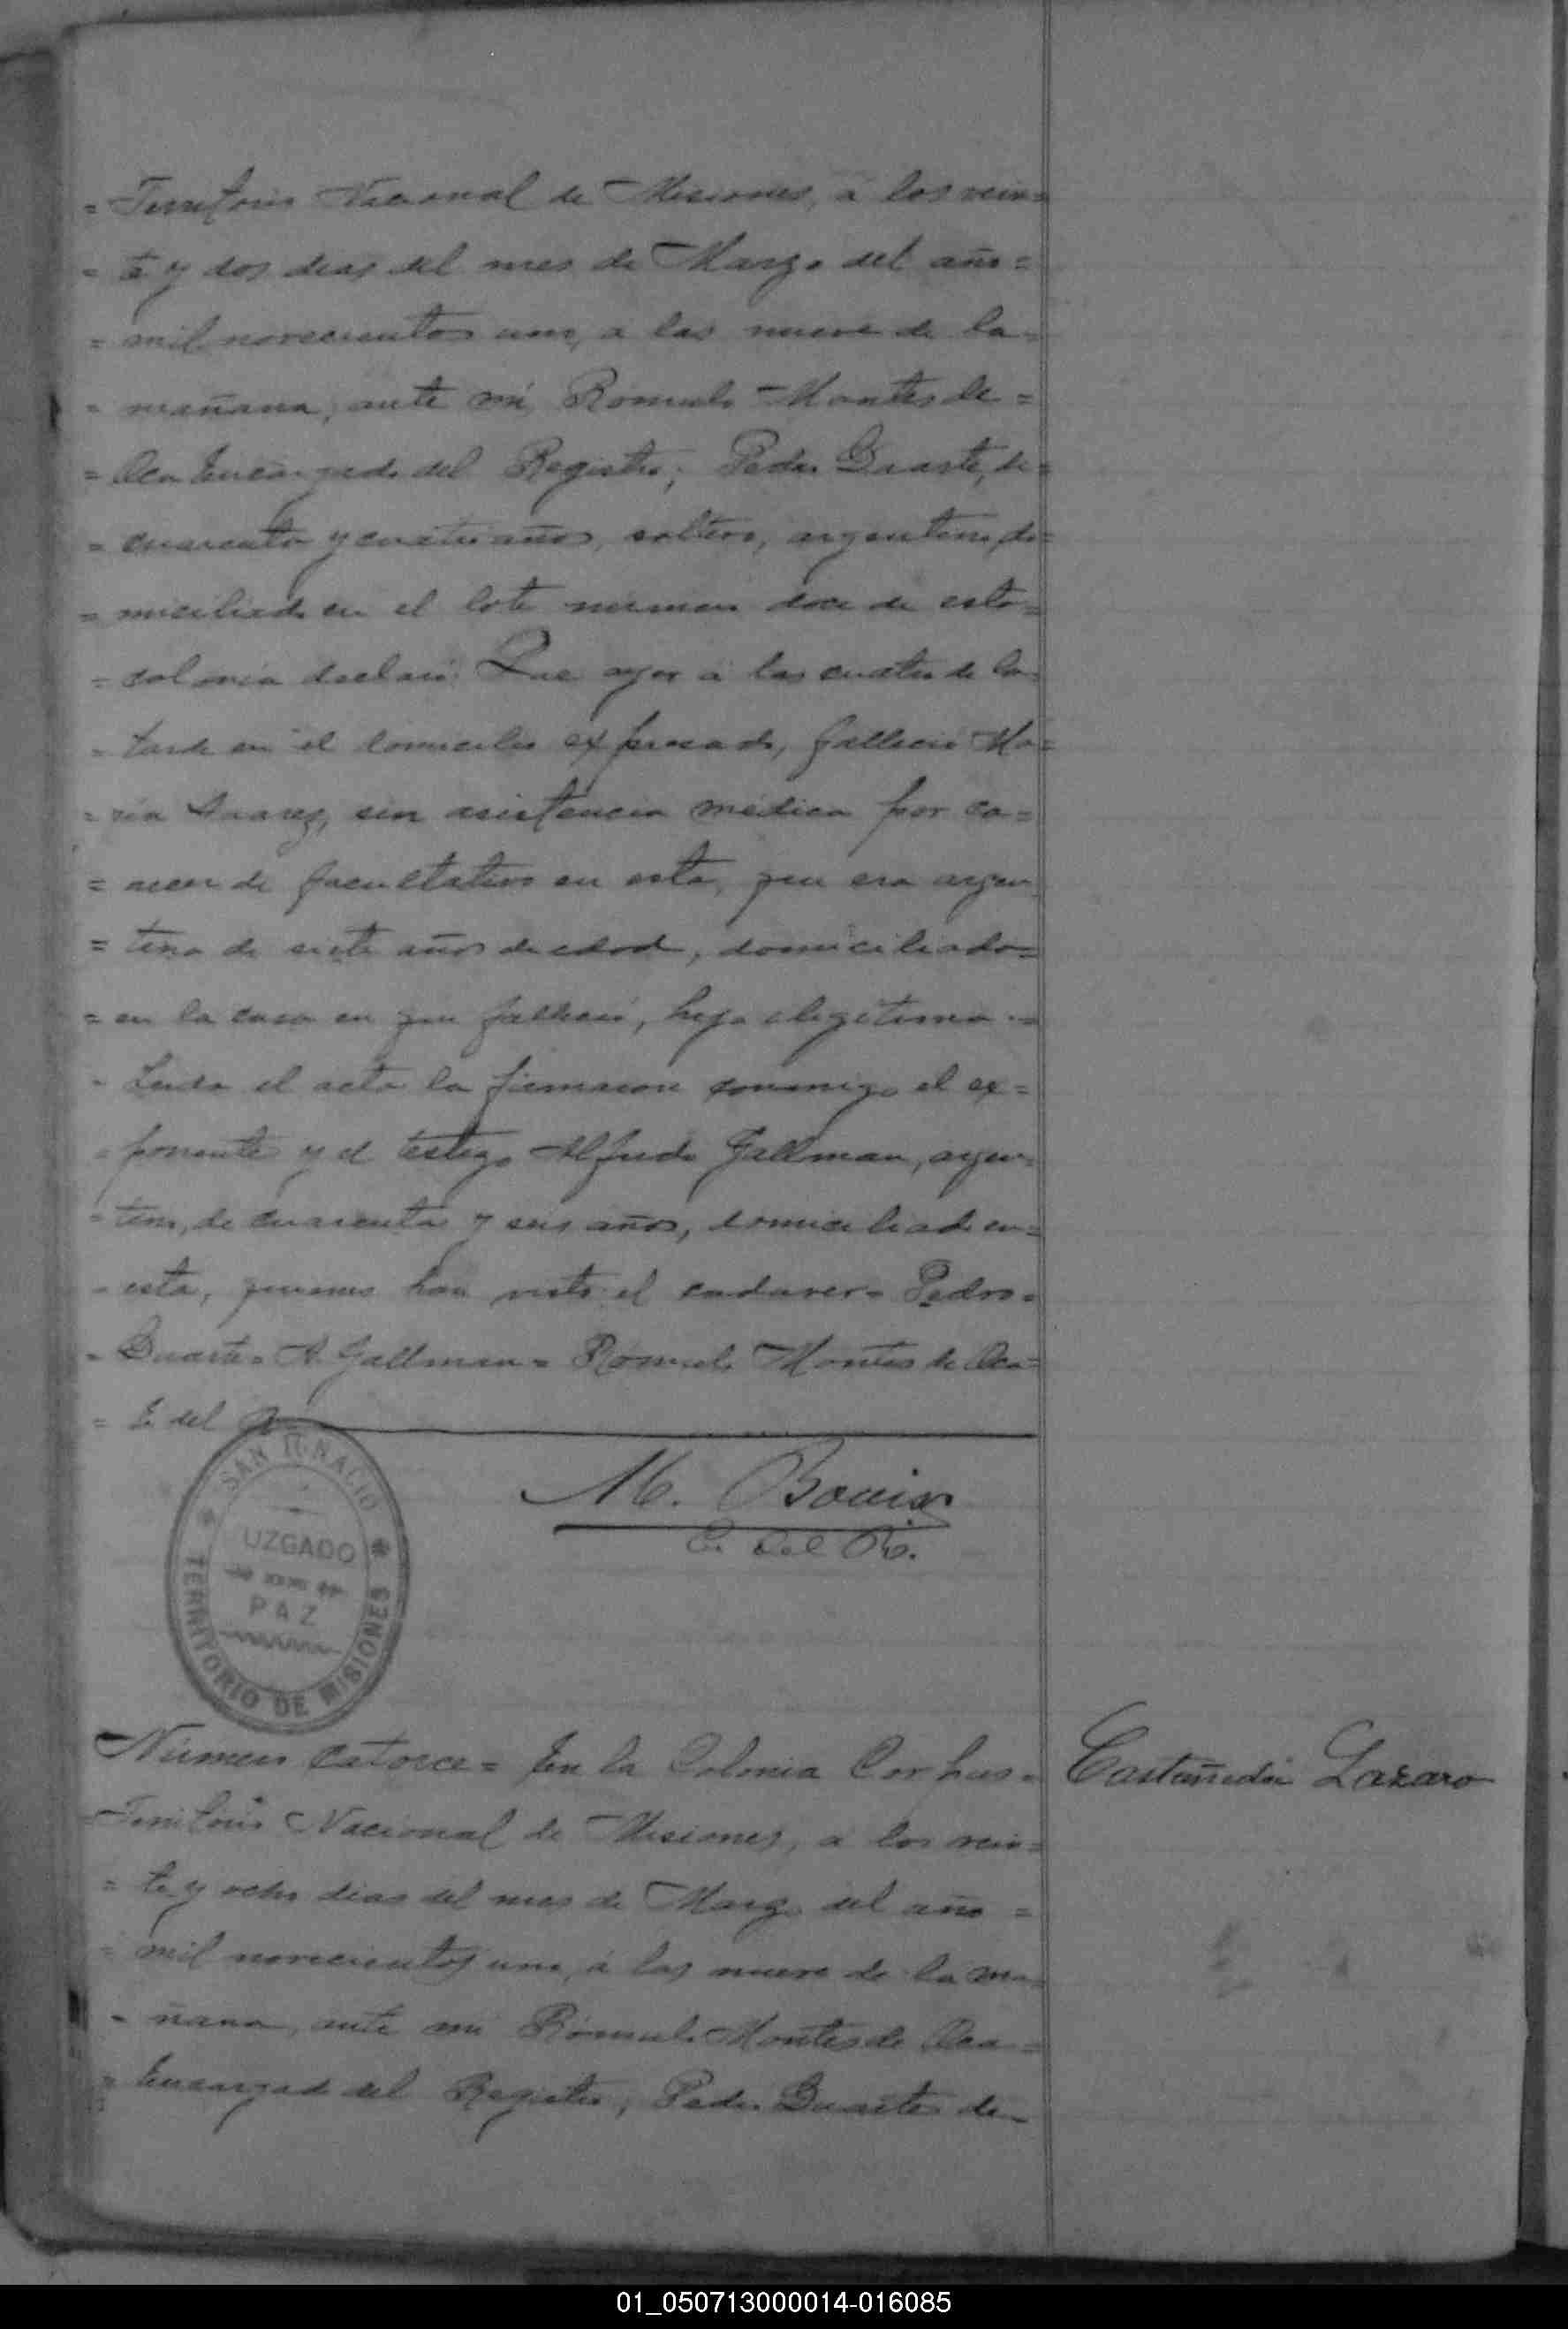 = Territorio Nacional de Misiones, a los vein=
= te y dos dias del mes de Marzo del año =
= mil novecientos uno, a las nueve de la =
= mañana, ante mi, Rómulo Montes de =
= Oca Encargado del Registro; Pedro Duarte, de =
= cuarenta y cuatro años, soltero, argentino, do=
= miciliado en el lote numero doce de esta =
= colonia declaró: Que ayer a las cuatro de la =
= tarde en el domicilio expresado, falleció Ma=
= ria Suarez, sin asistencia médica por ca=
= recer de facultativo en esta, que era argen
= tina de siete años de edad, domiciliada =
= en la casa en que falleció, hija ilegitima =
= Leida el acta la firmaron conmigo el ex=
= ponente y el testigo Alfredo Jallman, argen=
= tino, de cuarenta y seis años, domiciliado en =
= esta, quienes han visto el cadaver = Pedro =
= Duarte = A. Jallman = Rómulo Montes de Oca =
= E. del R.
M. Bouix
E. del R.
SAN IGNACIO
UZGADO
PAZ
TERRITORIO DE MISIONES
Número Catorce = En la Colonia Corpus =
Castañeda Lazaro
= Territorio Nacional de Misiones, a los vein=
= te y ocho dias del mes de Marzo del año =
= mil novecientos uno, á las nueve de la ma=
= ñana, ante mi Rómulo Montes de Oca =
= Encargado del Registro; Pedro Duarte de
01_050713000014-016085